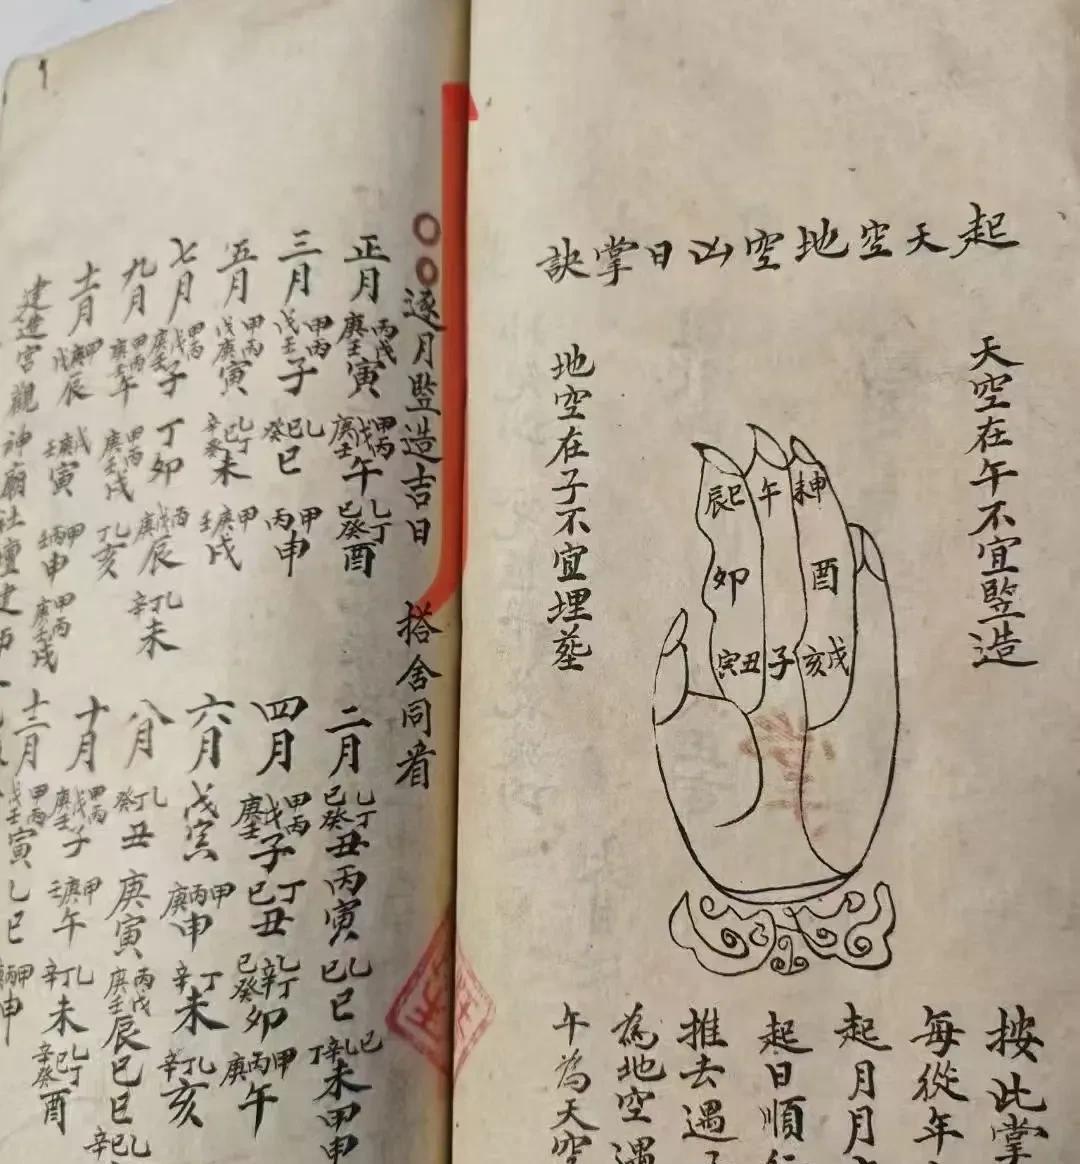 起天空地空凶日掌訣
天空在午不宜竪造
未申
午
辰巳
酉
卯
戌亥
子
丑寅
地空在子不宜埋塟
按此掌
每從年
起月月
起日順行
推去遇子
為地空遇
午為天空
逐月竪造吉日 搭舍同看
正月 丙戊庚壬寅 甲丙戊庚壬午 乙丁己癸酉
三月 甲丙戊壬子 乙己癸巳 甲丙申
五月 甲丙戊庚寅 乙丁己辛癸未 甲庚壬戌
七月 甲丙戊庚壬子 丁卯 丙戊庚辰 乙丁辛未
九月 甲丙庚壬午 甲丙庚壬戌 乙丁亥
十一月 甲庚戊辰 戊庚壬寅 甲丙壬申 甲丙庚壬戌
建造宮觀神廟社壇建
二月 乙丁己癸丑 丙寅 乙己巳 己乙辛丁未 甲申
四月 甲丙戊庚壬子 丁己丑 乙丁辛己癸卯 甲丙庚午
六月 戊寅 甲丙庚申 丁辛未 乙丁辛亥
八月 乙丁癸丑 庚寅 丙戊庚壬辰 己巳
十月 甲丙戊庚壬子 甲庚壬午 乙丁辛未 乙丁己辛癸酉
十二月 甲丙戊壬寅 乙巳 甲丙申